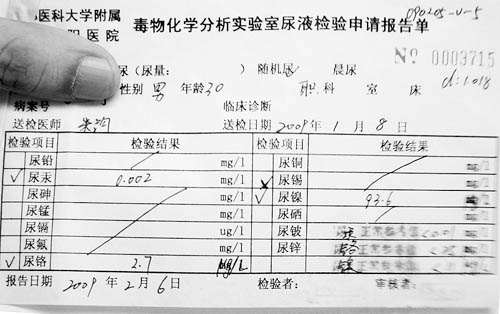 医科大学附属
职医院
毒物化学分析实验室尿液检验申请报告单
090205-U-5
No 0003715
尿（尿量： ） 随机尿 晨尿
d:1.018
性别 男 年龄30 职 科 室 床
病案号 临床诊断
送检医师 送检日期 2009年 1 月 8 日
检验项目 检验结果 检验项目 检验结果
尿铅 mg/l 尿铜 mg/l
✓ 尿汞 0.002 mg/l 尿锡 mg/l
尿砷 mg/l ✓ 尿镍 93.6
尿锰 mg/l 尿硒 mg/l
尿镉 ug/l 尿铍 正常参考值
尿氟 mg/l 尿锌 正常参考值
✓ 尿铬 2.7 μg/L 正常参考值
报告日期 2009 年 2 月 6 日 检验者： 审核者：